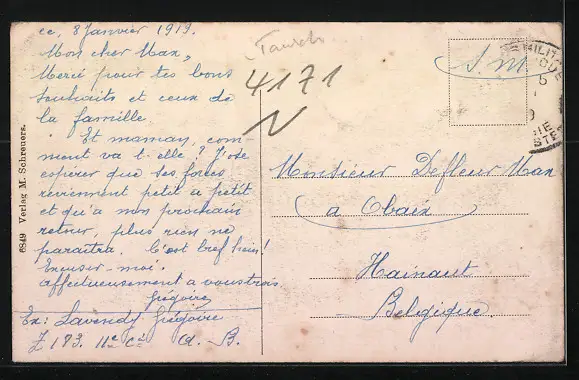 ce, 8 Janvier 1919.
Mon cher Max,
Merci pour tes bons
souhaits et ceux de
la famille.
Et maman, com-
ment va t-elle? J'ose
esperer que ses forces
reviennent petit à petit
et qu'a mon prochain
retour, plus rien ne
paraitra. C'est bref hein!
Excuser-moi.
Affectueusement a vous trois
Grégoire
Ex: Grégoire
Z 183. 11e Cie A. B.
6849 Verlag M. Schreuers.
Tausch
4171
N
S. M.
MILIT
Monsieur Defleur Max
a Obaix
Hainaut
Belgique.